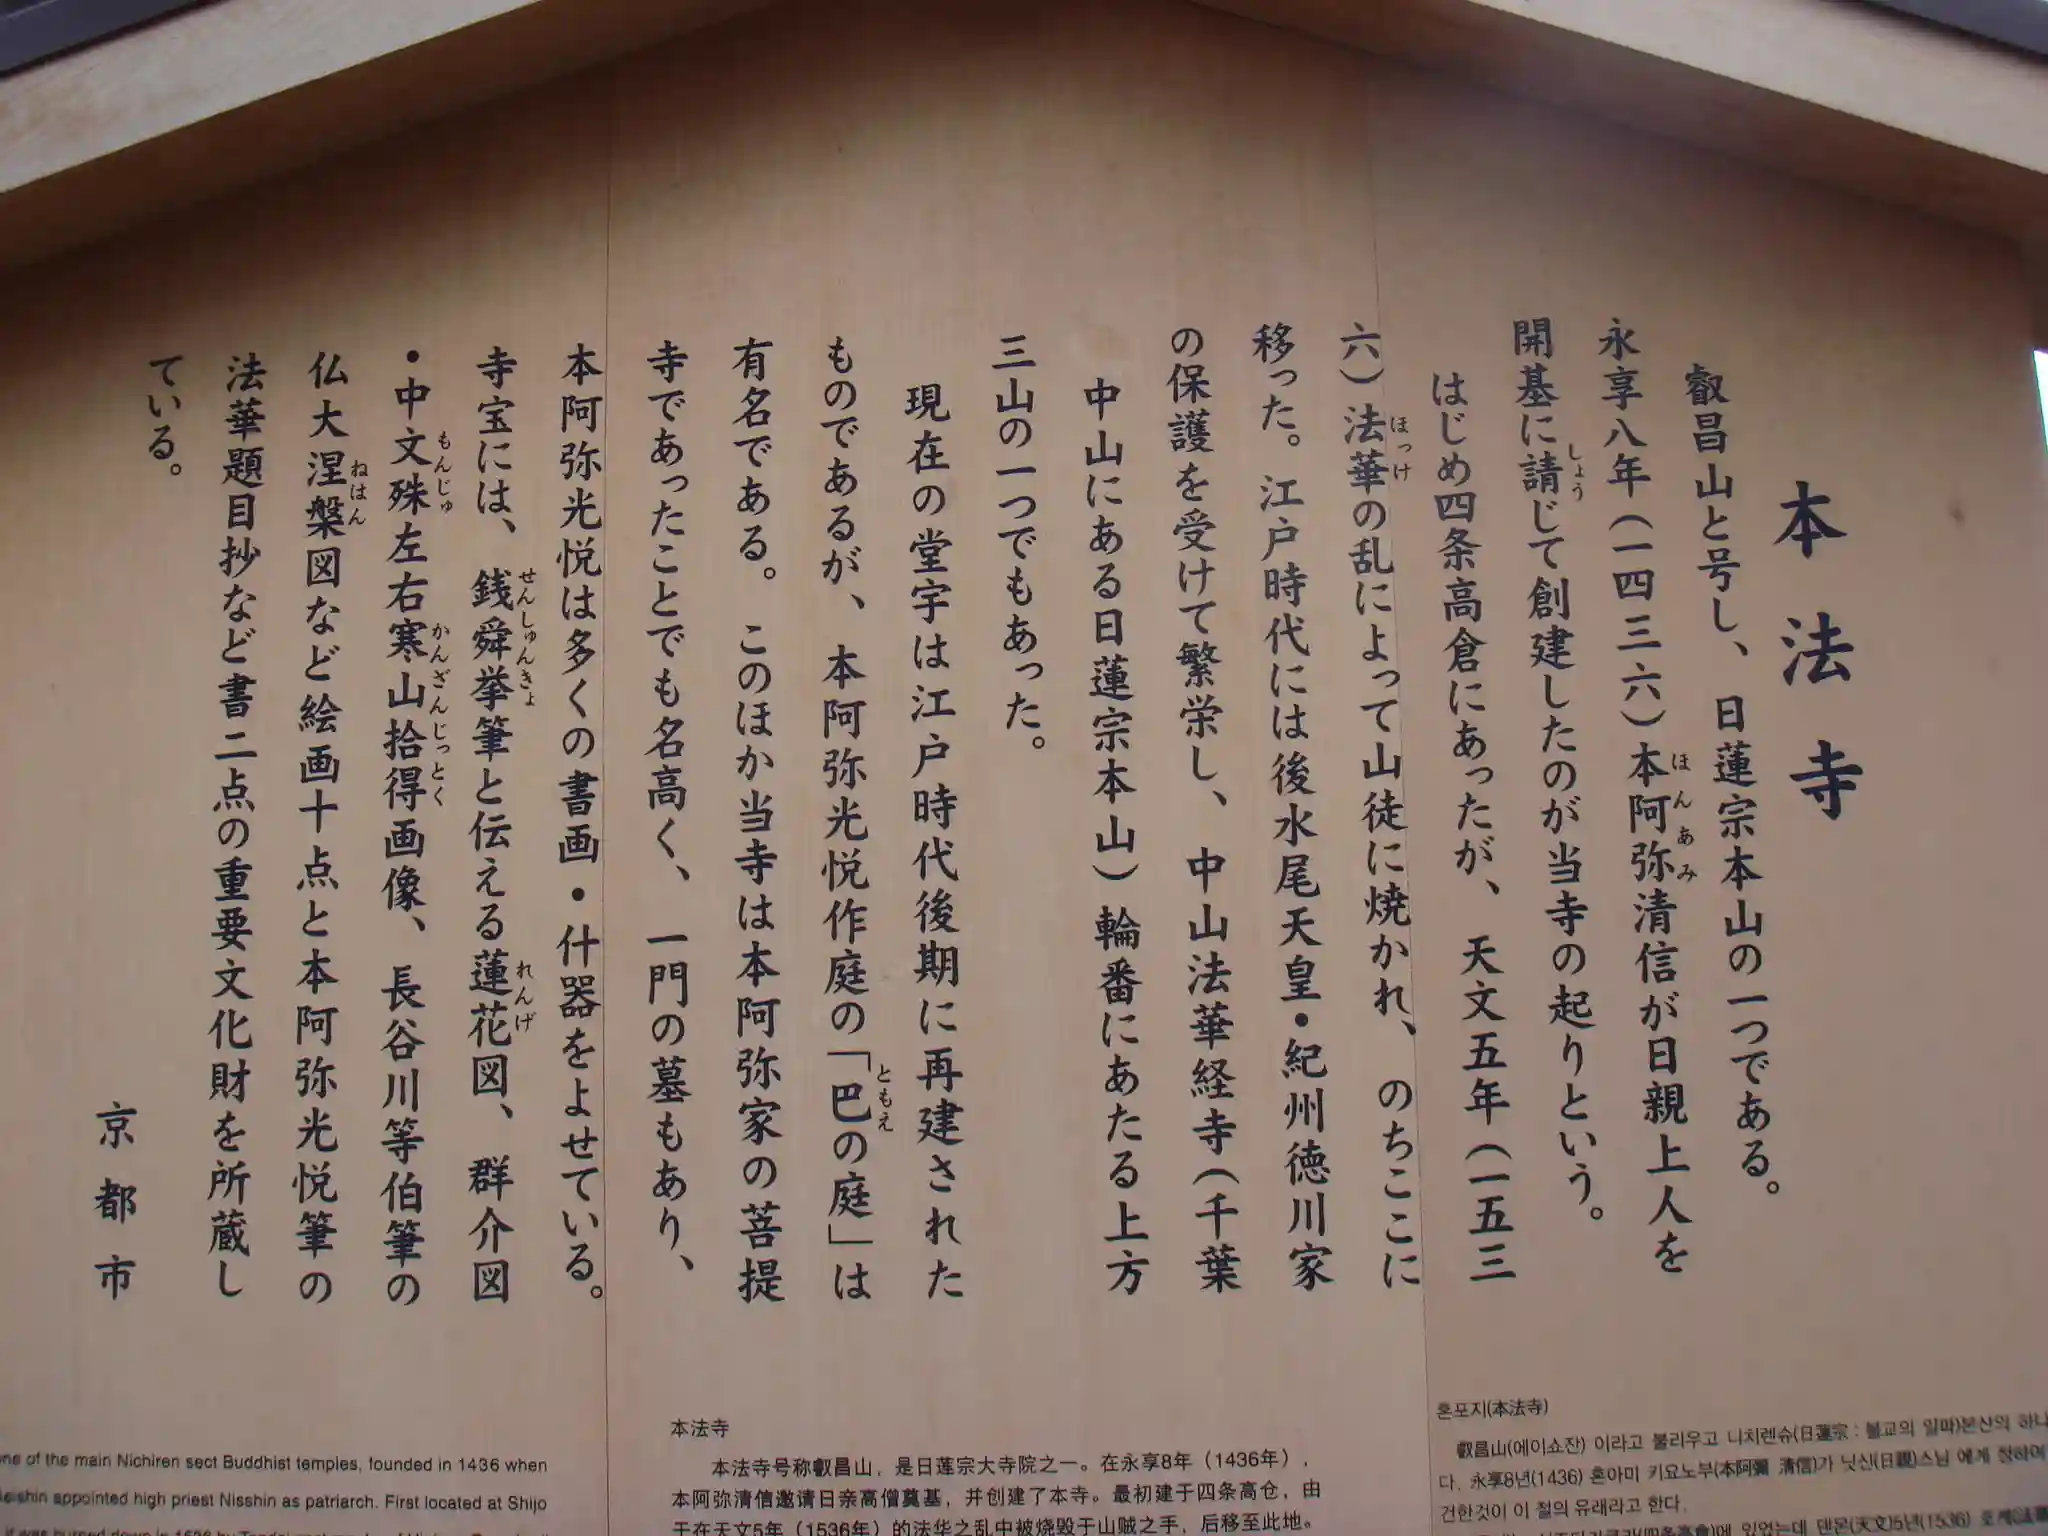 本法寺
叡昌山と号し、日蓮宗本山の一つである。
永享八年(一四三六)本阿弥清信が日親上人を
開基に請じて創建したのが当寺の起りという。
はじめ四条高倉にあったが、天文五年(一五三
六)法華の乱によって山徒に焼かれ、のちここに
移った。江戸時代には後水尾天皇・紀州徳川家
の保護を受けて繁栄し、中山法華経寺(千葉
中山にある日蓮宗本山)輪番にあたる上方
三山の一つでもあった。
現在の堂宇は江戸時代後期に再建された
ものであるが、本阿弥光悦作庭の「巴の庭」は
有名である。このほか当寺は本阿弥家の菩提
寺であったことでも名高く、一門の墓もあり、
本阿弥光悦は多くの書画・什器をよせている。
寺宝には、銭舜挙筆と伝える蓮花図、群介図
・中文殊左右寒山拾得画像、長谷川等伯筆の
仏大涅槃図など絵画十点と本阿弥光悦筆の
法華題目抄など書二点の重要文化財を所蔵し
ている。
京都市
one of the main Nichiren sect Buddhist temples, founded in 1436 when
appointed high priest Nisshin as patriarch. First located at Shijo
本法寺
本法寺号称叡昌山，是日莲宗大寺院之一。在永享8年（1436年），
本阿弥清信邀请日亲高僧奠基，并创建了本寺。最初建于四条高仓，由
于在天文5年（1536年）的法华之乱中被烧毁于山贼之手，后移至此地。
혼포지(本法寺)
叡昌山(에이쇼잔) 이라고 불리우고 니치렌슈(日蓮宗 : 불교의 일파)본산의 하나
다. 永享8년(1436) 혼아미 키요노부(本阿彌 清信)가 닛신(日親)스님 에게 청하여
건한것이 이 절의 유래라고 한다.